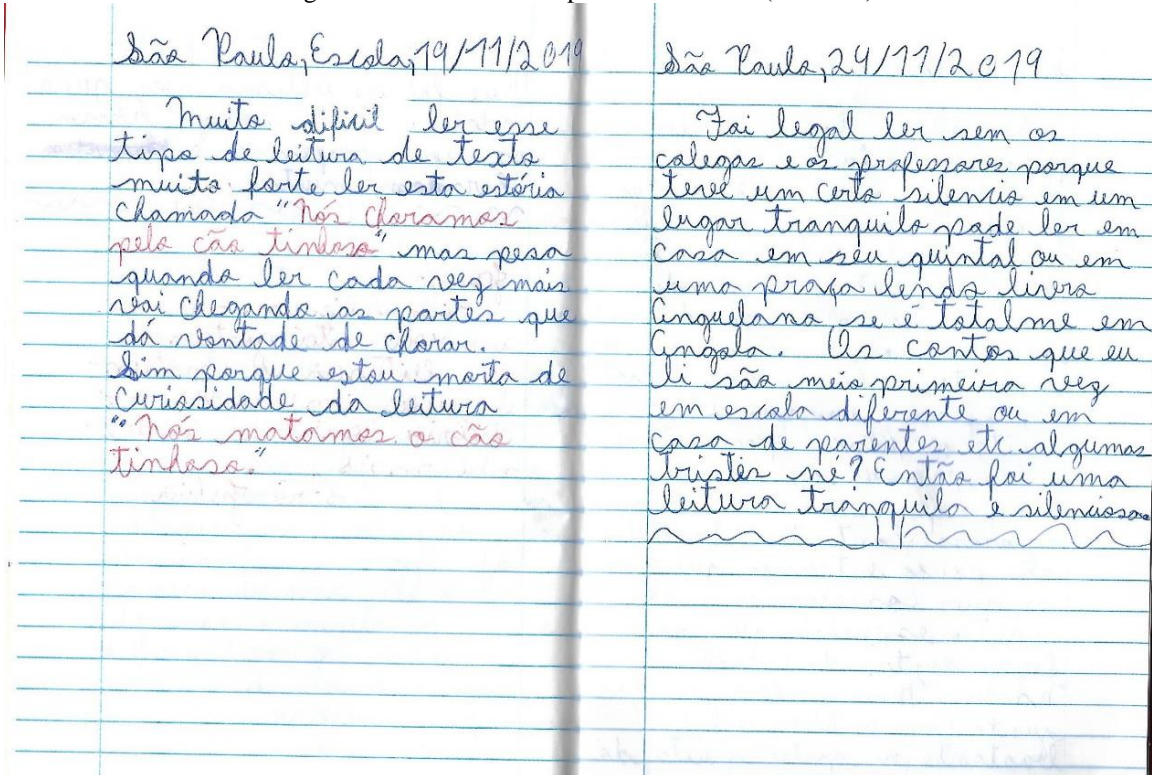 São Paulo, Escola, 19/11/2019
Muito dificil ler esse
tipo de leitura de texto
muito forte ler esta estória
chamada "Nós choramos
pelo cão tinhoso" mas pesa
quando ler cada vez mais
vai chegando as partes que
dá vontade de chorar.
Sim porque estou morta de
curiosidade da leitura
"Nós matamos o cão
tinhoso."
São Paulo, 24/11/2019
Foi legal ler sem os
colegas e os professores porque
teve um certo silencio em um
lugar tranquilo pode ler em
casa em seu quintal ou em
uma praça lendo livro
Anguelano se é totalme em
Angola. Os contos que eu
li são meio primeira vez
em escola diferente ou em
casa de parentes etc algumas
tristes né? Então foi uma
leitura tranquila e silenciosa.